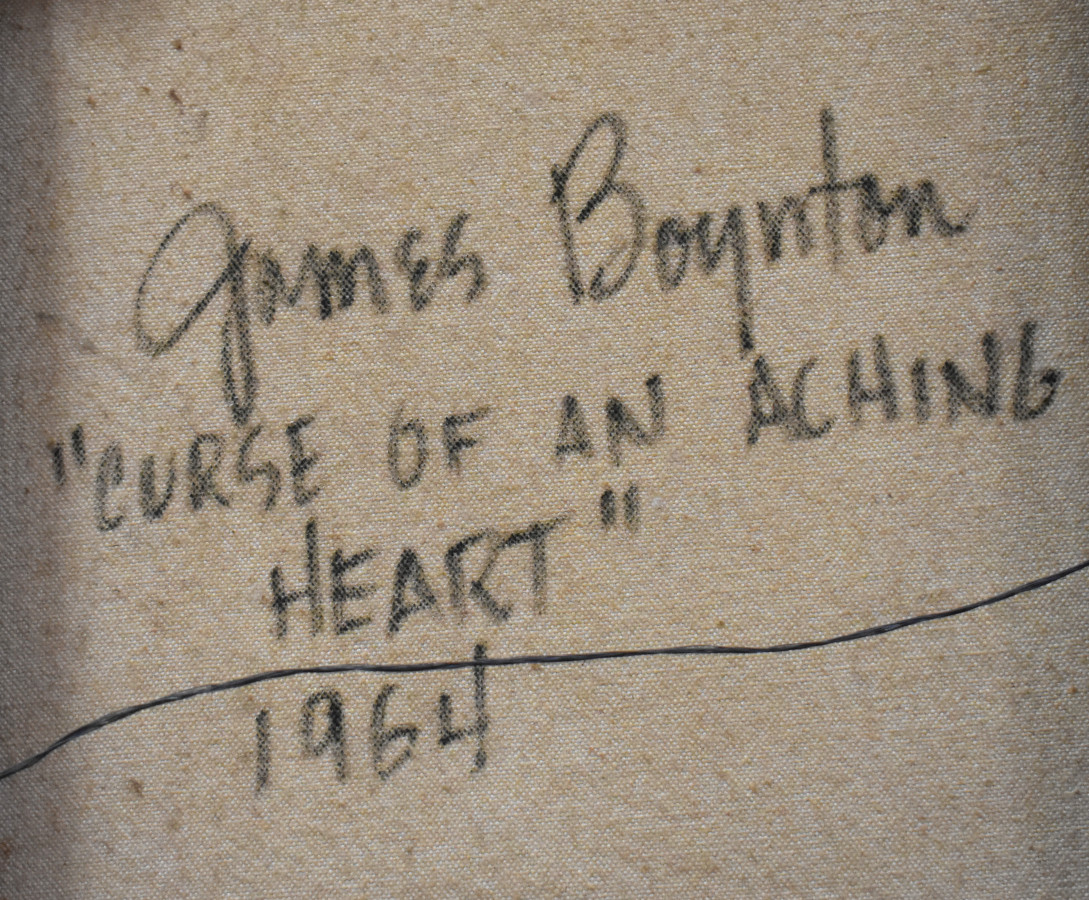 James Boynton
"CURSE OF AN ACHING
HEART"
1964